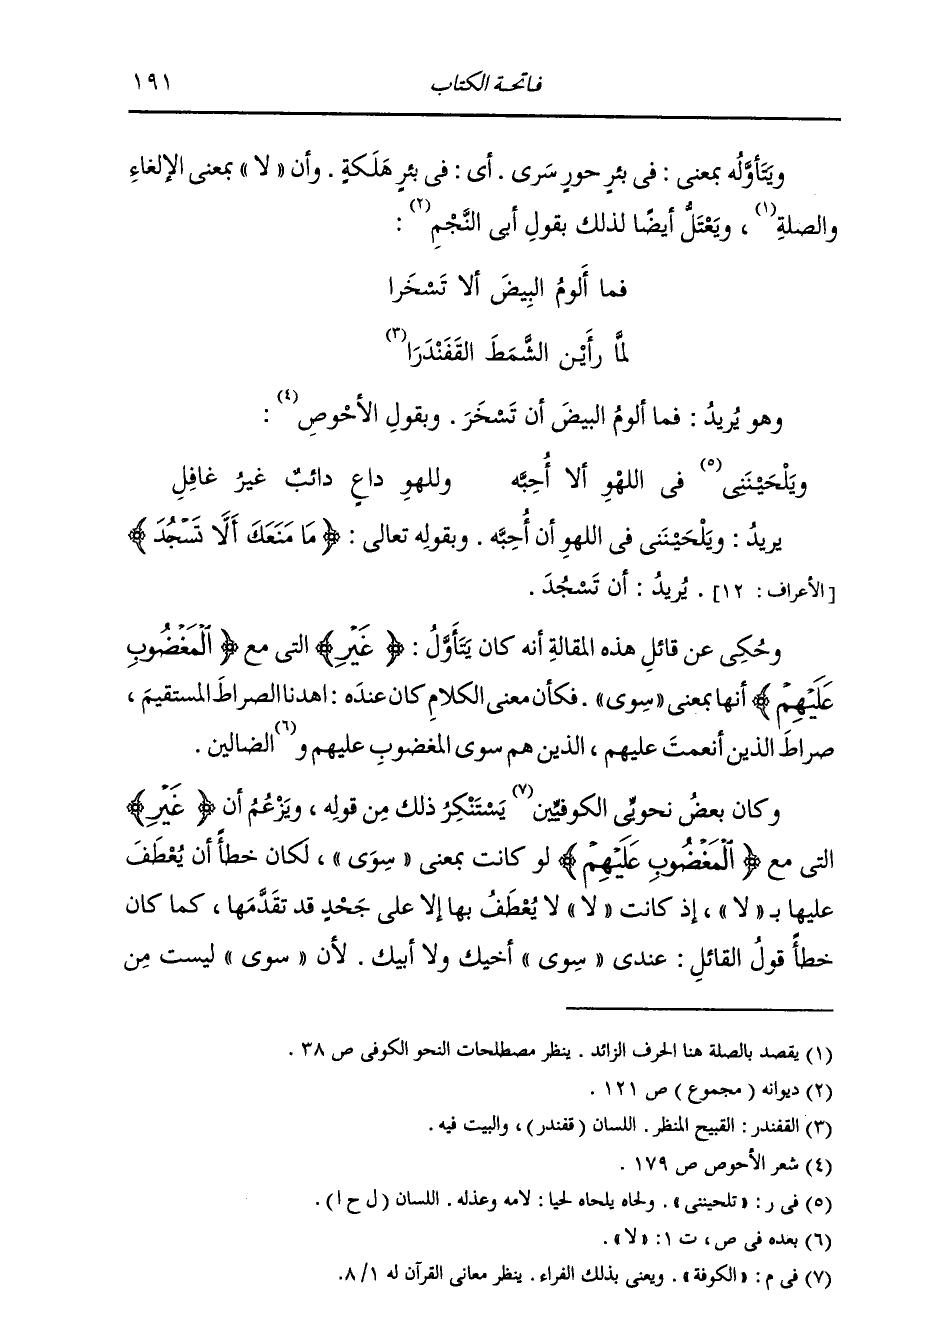 فاتحة الكتاب ١٩١
ويَتَأوَّلُه بمعنى : فى بئرِ حورٍ سَرى . أى : فى بئرِ هَلَكةٍ . وأن « لا » بمعنى الإلغاءِ
والصلةِ(١) ، ويَعْتَلُّ أيضًا لذلك بقولِ أبى النَّجْمِ(٢) :
فما أَلومُ البِيضَ ألا تَسْخَرا
لمَّا رأَيْن الشَّمَطَ القَفَنْدَرَا(٣)
وهو يُريدُ : فما ألومُ البيضَ أن تَسْخَرَ . وبقولِ الأحْوصِ(٤) :
ويَلْحَيْنَنِى(٥) فى اللهْوِ ألا أُحِبَّه وللهوِ داعٍ دائبٌ غيرُ غافِلِ
يريدُ : ويَلْحَيْنَنى فى اللهوِ أن أُحِبَّه . وبقولِه تعالى : ﴿ مَا مَنَعَكَ أَلَّا تَسْجُدَ ﴾
[الأعراف : ١٢] . يُريدُ : أن تَسْجُدَ .
وحُكِى عن قائلِ هذه المقالةِ أنه كان يَتَأَوَّلُ : ﴿ غَيْرِ ﴾ التى مع ﴿ الْمَغْضُوبِ
عَلَيْهِمْ ﴾ أنها بمعنى «سِوى» . فكأن معنى الكلامِ كان عندَه : اهدنا الصراطَ المستقيمَ ،
صراطَ الذين أنعمتَ عليهم ، الذين هم سوى المغضوبِ عليهم و(٦) الضالين .
وكان بعضُ نحويِّى الكوفيِّين(٧) يَسْتَنْكِرُ ذلك مِن قوله ، ويَزْعُمُ أن ﴿ غَيْرِ ﴾
التى مع ﴿ الْمَغْضُوبِ عَلَيْهِمْ ﴾ لو كانت بمعنى « سِوَى » ، لكان خطأً أن يُعْطَفَ
عليها بـ « لا » ، إذ كانت « لا » لا يُعْطَفُ بها إلا على جَحْدٍ قد تقَدَّمَها ، كما كان
خطأً قولُ القائلِ : عندى « سِوى » أخيك ولا أبيك . لأن « سوى » ليست مِن
(١) يقصد بالصلة هنا الحرف الزائد . ينظر مصطلحات النحو الكوفى ص ٣٨ .
(٢) ديوانه ( مجموع ) ص ١٢١ .
(٣) القفندر : القبيح المنظر . اللسان ( قفندر ) ، والبيت فيه .
(٤) شعر الأحوص ص ١٧٩ .
(٥) فى ر : « تلحيننى » . ولحاه يلحاه لحيا : لامه وعذله . اللسان ( ل ح ا ) .
(٦) بعده فى ص ، ت ١ : « لا » .
(٧) فى م : « الكوفة » . ويعنى بذلك الفراء . ينظر معانى القرآن له ١/ ٨.